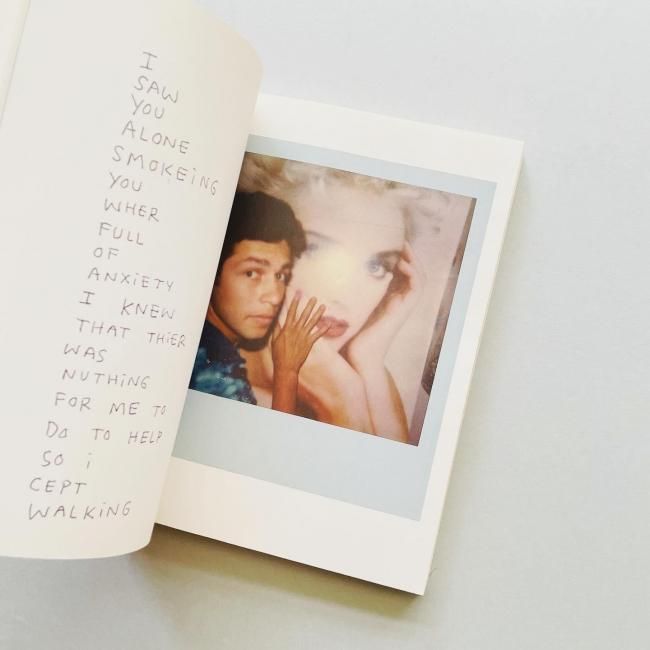 I
SAW
YOU
ALONE
SMOKEiNG
YOU
WHER
FULL
OF
ANXiETY
I KNEW
THAT THiER
WAS
NUTHiNG
FOR ME TO
DO TO HELP
SO i
CEPT
WALKiNG